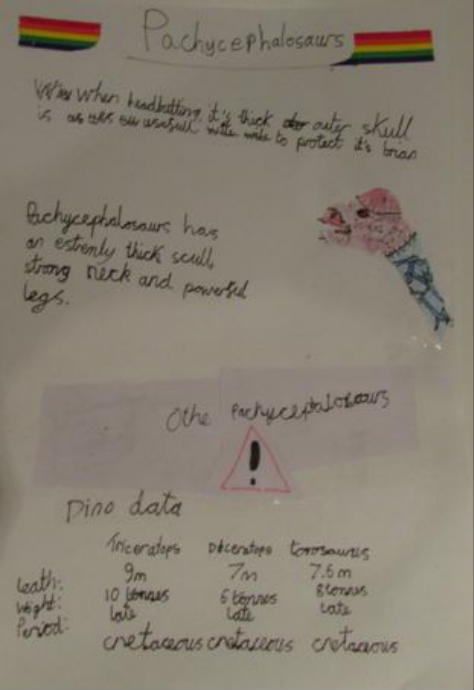 Pachycephalosaurs
When headbutting it's thick outer skull
is as usefull to protect it's brian
Pachycephalosaurs has
an estremly thick scull,
strong neck and powerful
legs.
Othe Pachycephalosaurs
!
Dino data
Triceratops Diceratops torosaurus
Leath: 9m 7m 7.6m
Wight: 10 tonnes 6 tonnes 8 tonnes
Period: late late late
cretaceous cretaceous cretaceous